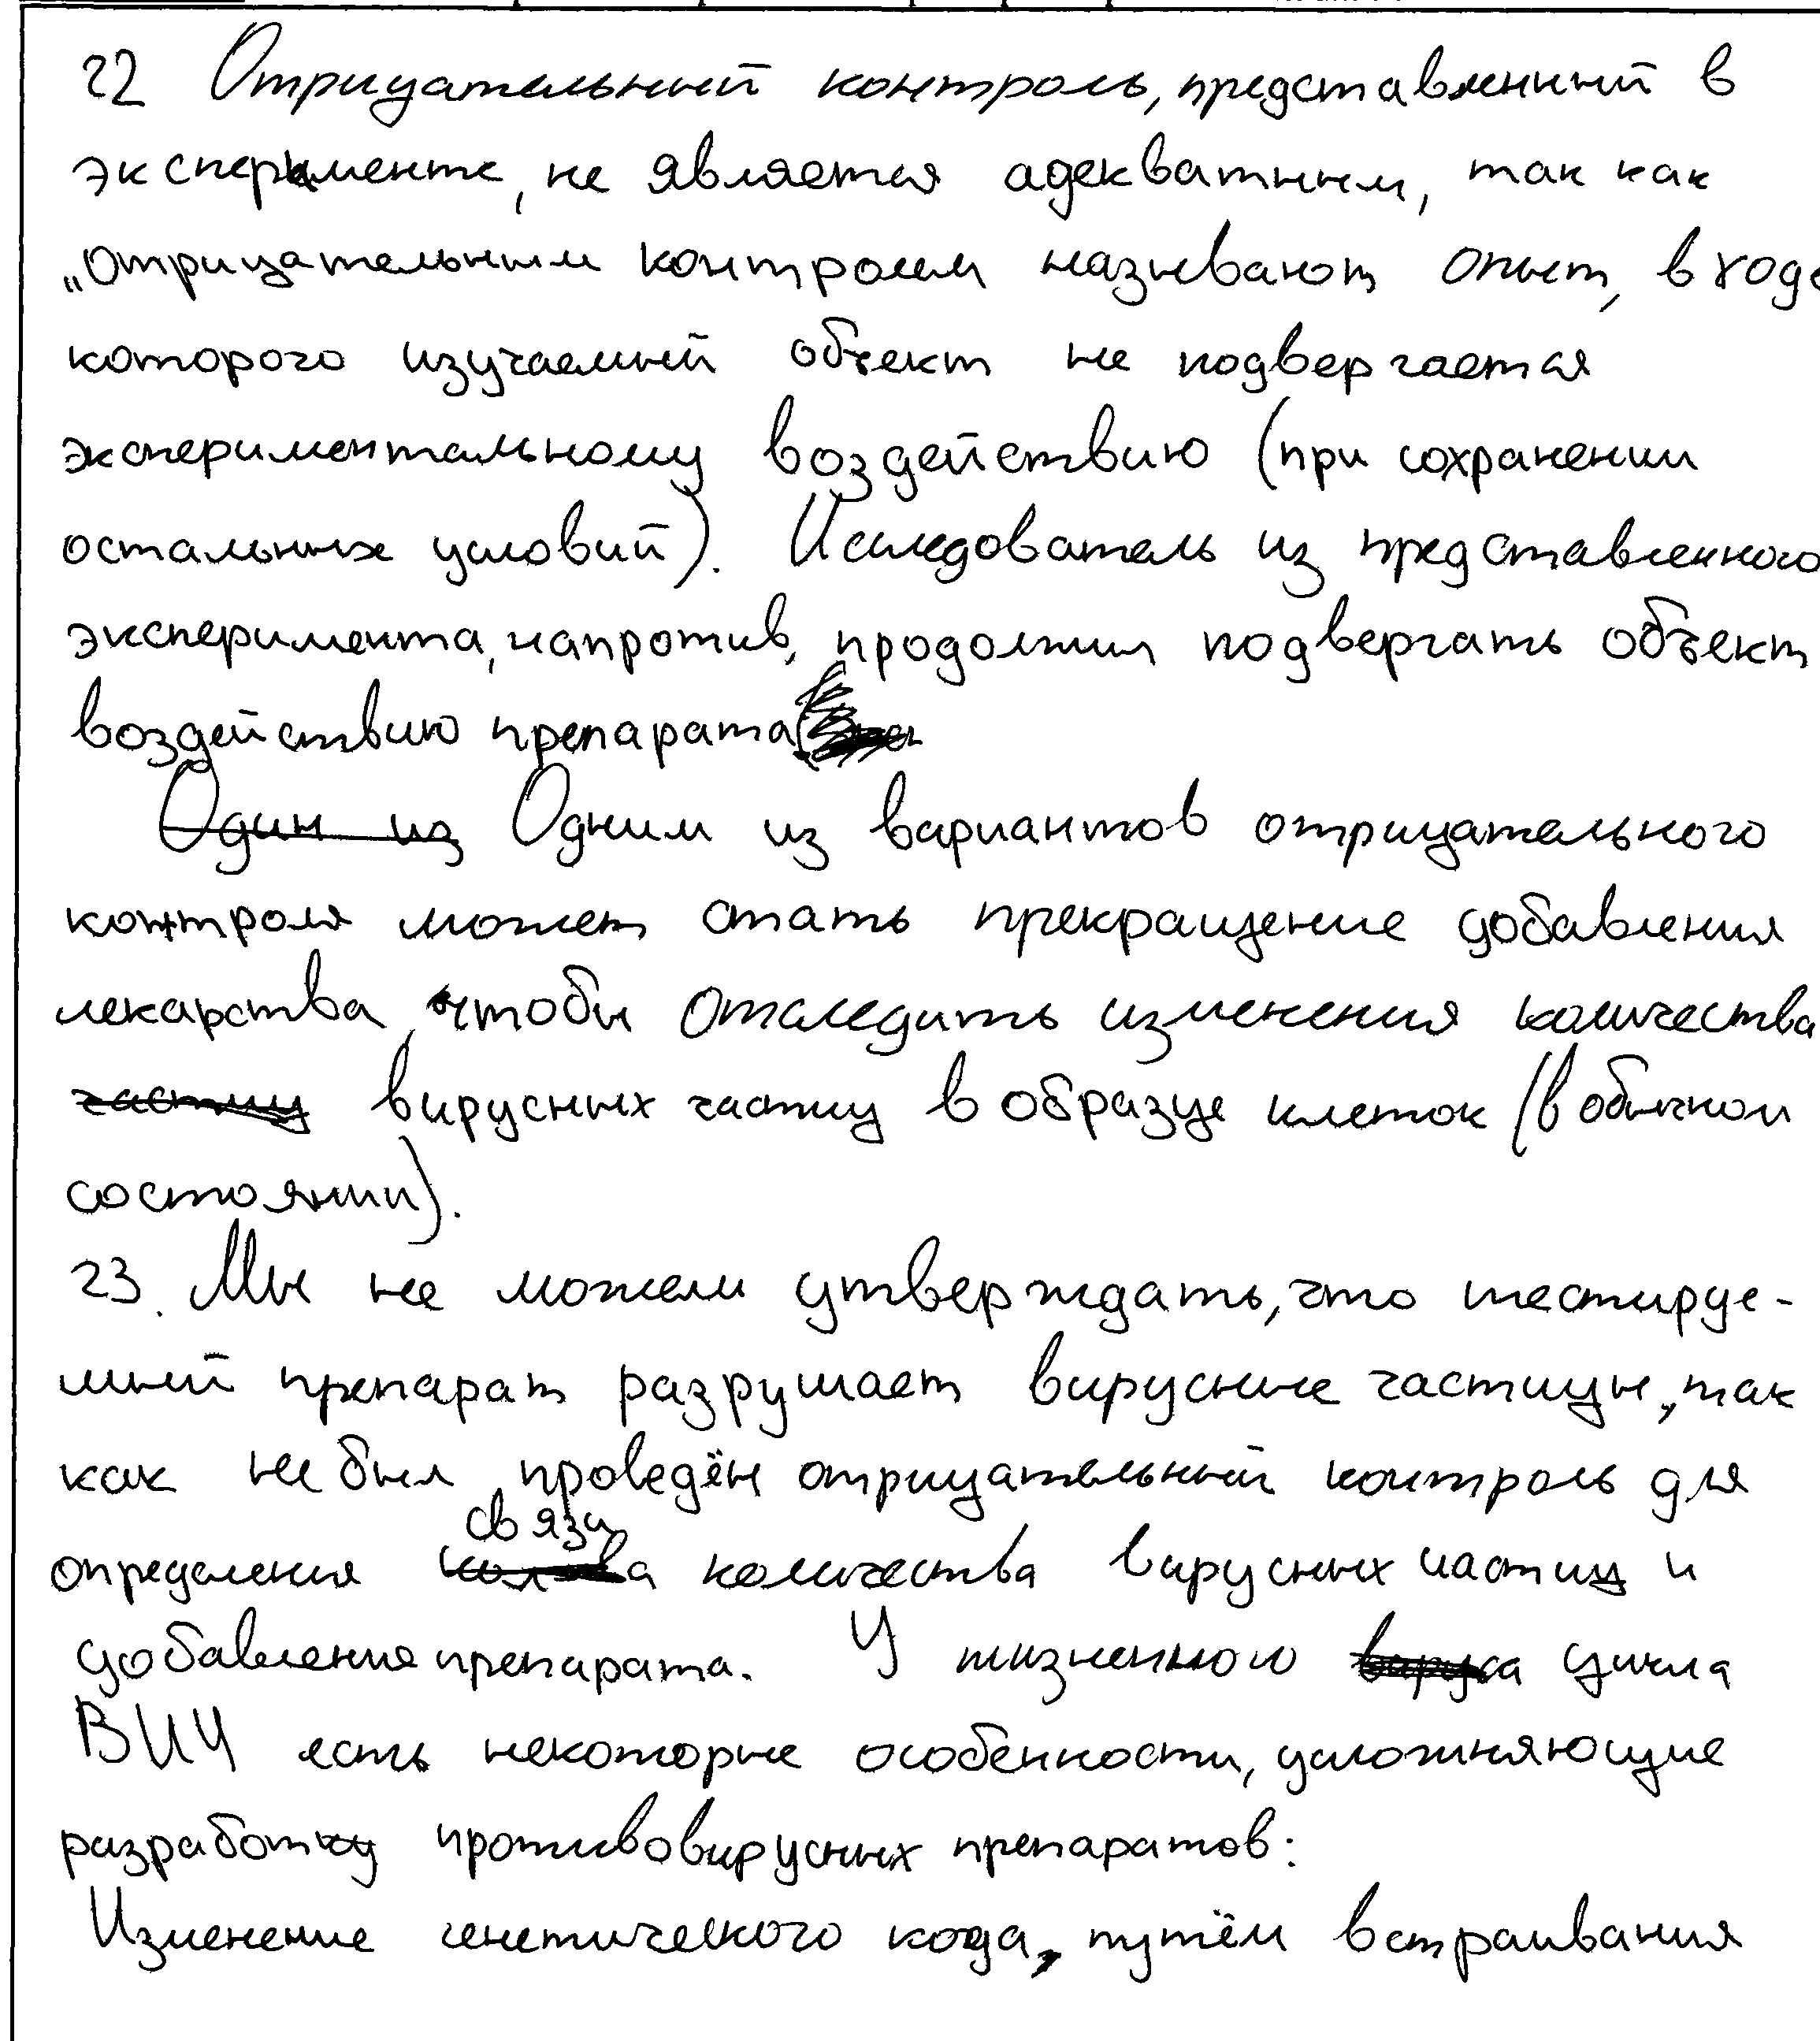 22 Отрицательный контроль, представленный в
эксперименте, не является адекватным, так как
„Отрицательным контролем называют опыт, в ходе
которого изучаемый объект не подвергается
экспериментальному воздействию (при сохранении
остальных условий). Исследователь из представленного
эксперимента, напротив, продолжил подвергать объект
воздействию препарата
Один из Одним из вариантов отрицательного
контроля может стать прекращение добавления
лекарства, чтобы отследить изменения количества
частиц вирусных частиц в образце клеток (в обычном
состоянии).
23. Мы не можем утверждать, что тестируе-
мый препарат разрушает вирусные частицы, так
как не был проведён отрицательный контроль для
определения связи количества вирусных частиц и
добавления препарата. У жизненного вируса цикла
ВИЧ есть некоторые особенности, усложняющие
разработку противовирусных препаратов:
Изменение генетического кода, путём встраивания